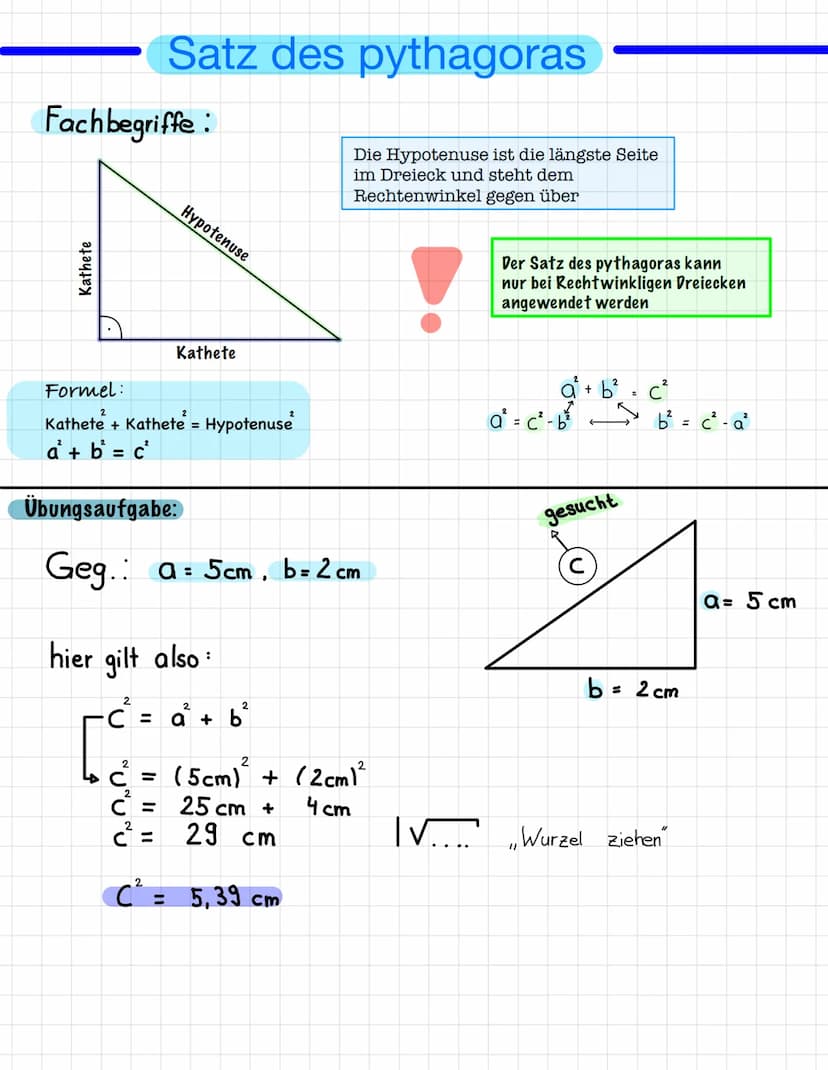 Satz des pythagoras
Fachbegriffe:
Die Hypotenuse ist die längste Seite
im Dreieck und steht dem
Rechtenwinkel gegen über
Kathete
Hypotenuse
Kathete
Der Satz des pythagoras kann
nur bei Rechtwinkligen Dreiecken
angewendet werden
Formel:
Kathete² + Kathete² = Hypotenuse²
a² + b² = c²
a² + b² = c²
a² = c² - b² ⟷ b² = c² - a²
Übungsaufgabe:
gesucht
C
Geg.: a = 5cm, b = 2 cm
a = 5 cm
b = 2 cm
hier gilt also:
C² = a² + b²
c² = (5cm)² + (2cm)²
c² = 25 cm + 4 cm
c² = 29 cm |√.... „Wurzel ziehen“
C² = 5,39 cm